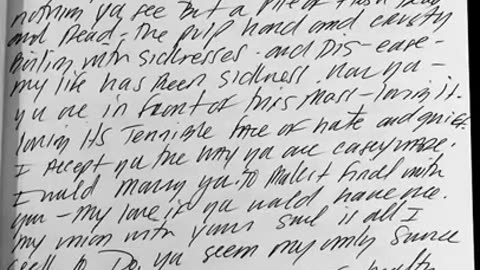 nothing ya see But a pile of flesh
and Dead - the pulp hand and cavity
with sicknesses - and Dis-ease -
my life has Been sickness. Now ya -
ya are in front of this mass - loving it.
loving its Terrible face of hate and quiet.
I accept ya the way ya are
I would marry ya. To make it final with
you - my love if ya would have me.
my union with your soul is all I
Do. ya seem my only